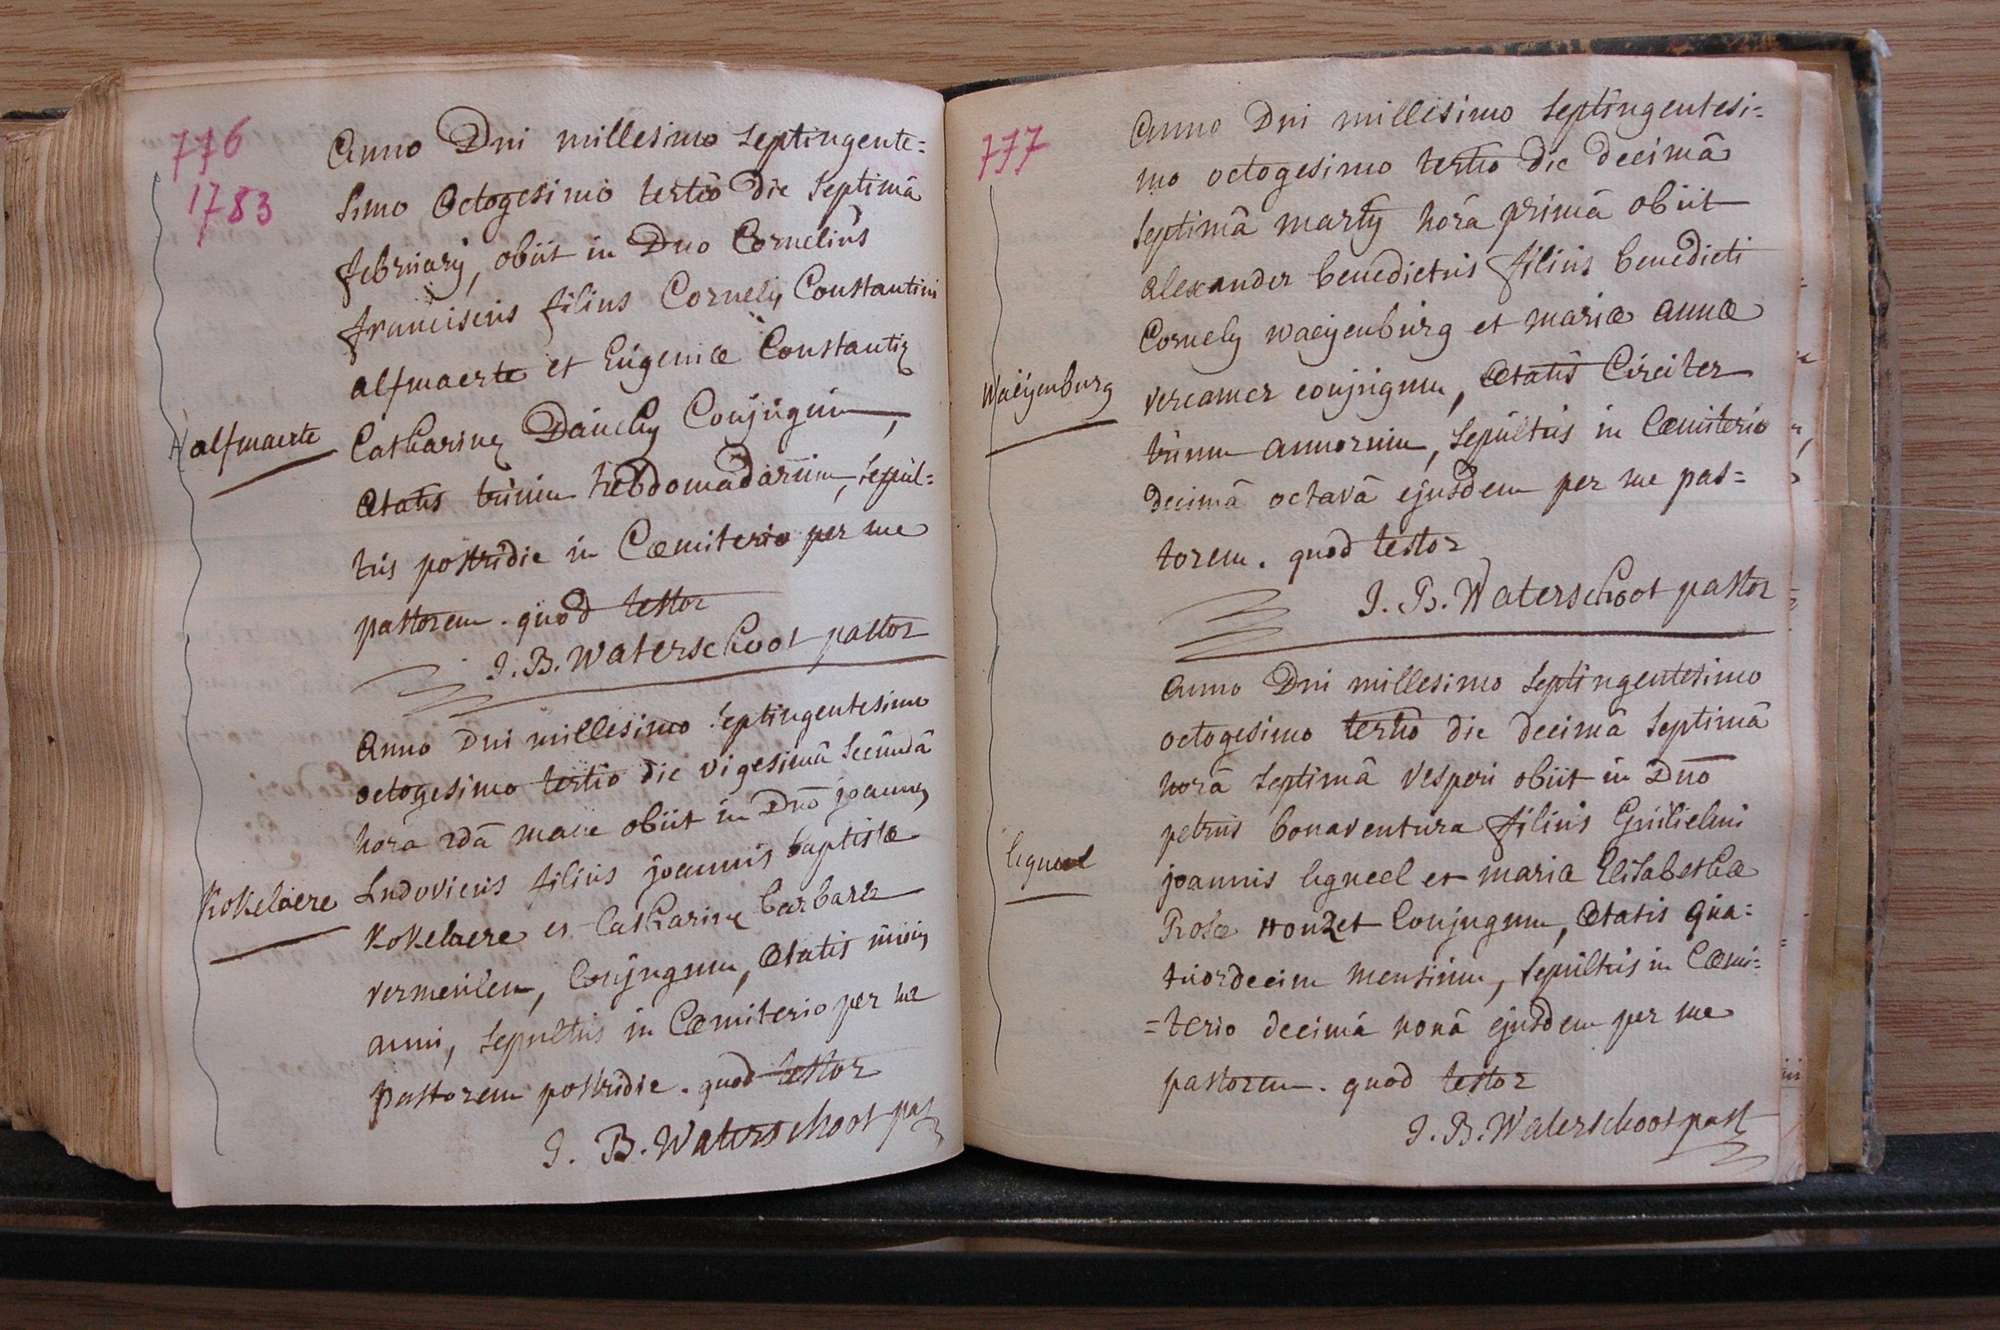 776
1783
Anno Dni millesimo septingente=
simo octogesimo tertio die septimâ
februarij, obiit in Dno Cornelius
franciscus filius Cornelij Constantini
alfmaerte et Eugeniæ Constantiæ
Catharinæ Dauchy Conjugum,
ætatis trium hebdomadarum, sepul=
tus postridie in Cœmiterio per me
pastorem. quod testor
J. B. Waterschoot pastor
Halfmaerte
Anno Dni millesimo septingentesimo
octogesimo tertio die vigesimâ secundâ
horâ 2dâ mane obiit in Dno joannes
Ludovicus filius joannis baptistæ
Kokelaere et Catharinæ barbaræ
vermeulen, Conjugum, ætatis unius
anni, sepultus in Cœmiterio per me
pastorem postridie. quod testor
J. B. Waterschoot past
Kokelaere
777
Anno Dni millesimo septingentesi=
mo octogesimo tertio die decimâ
septimâ martij horâ primâ obiit
alexander benedictus filius benedicti
Cornelij waeyenburg et mariæ annæ
vercamer conjugum, ætatis Circiter
trium annorum, sepultus in Cœmiterio
decimâ octavâ ejusdem per me pas=
torem. quod testor
J. B. Waterschoot pastor
Waeyenburg
Anno Dni millesimo septingentesimo
octogesimo tertio die decimâ septimâ
horâ septimâ vesperi obiit in Dno
petrus bonaventura filius Guilielmi
joannis legneel et mariæ Elisabethæ
Rosæ Houzet Conjugum, ætatis qua=
tuordecim mensium, sepultus in Cœmi=
=terio decimâ nonâ ejusdem per me
pastorem. quod testor
J. B. Waterschoot past
legneel